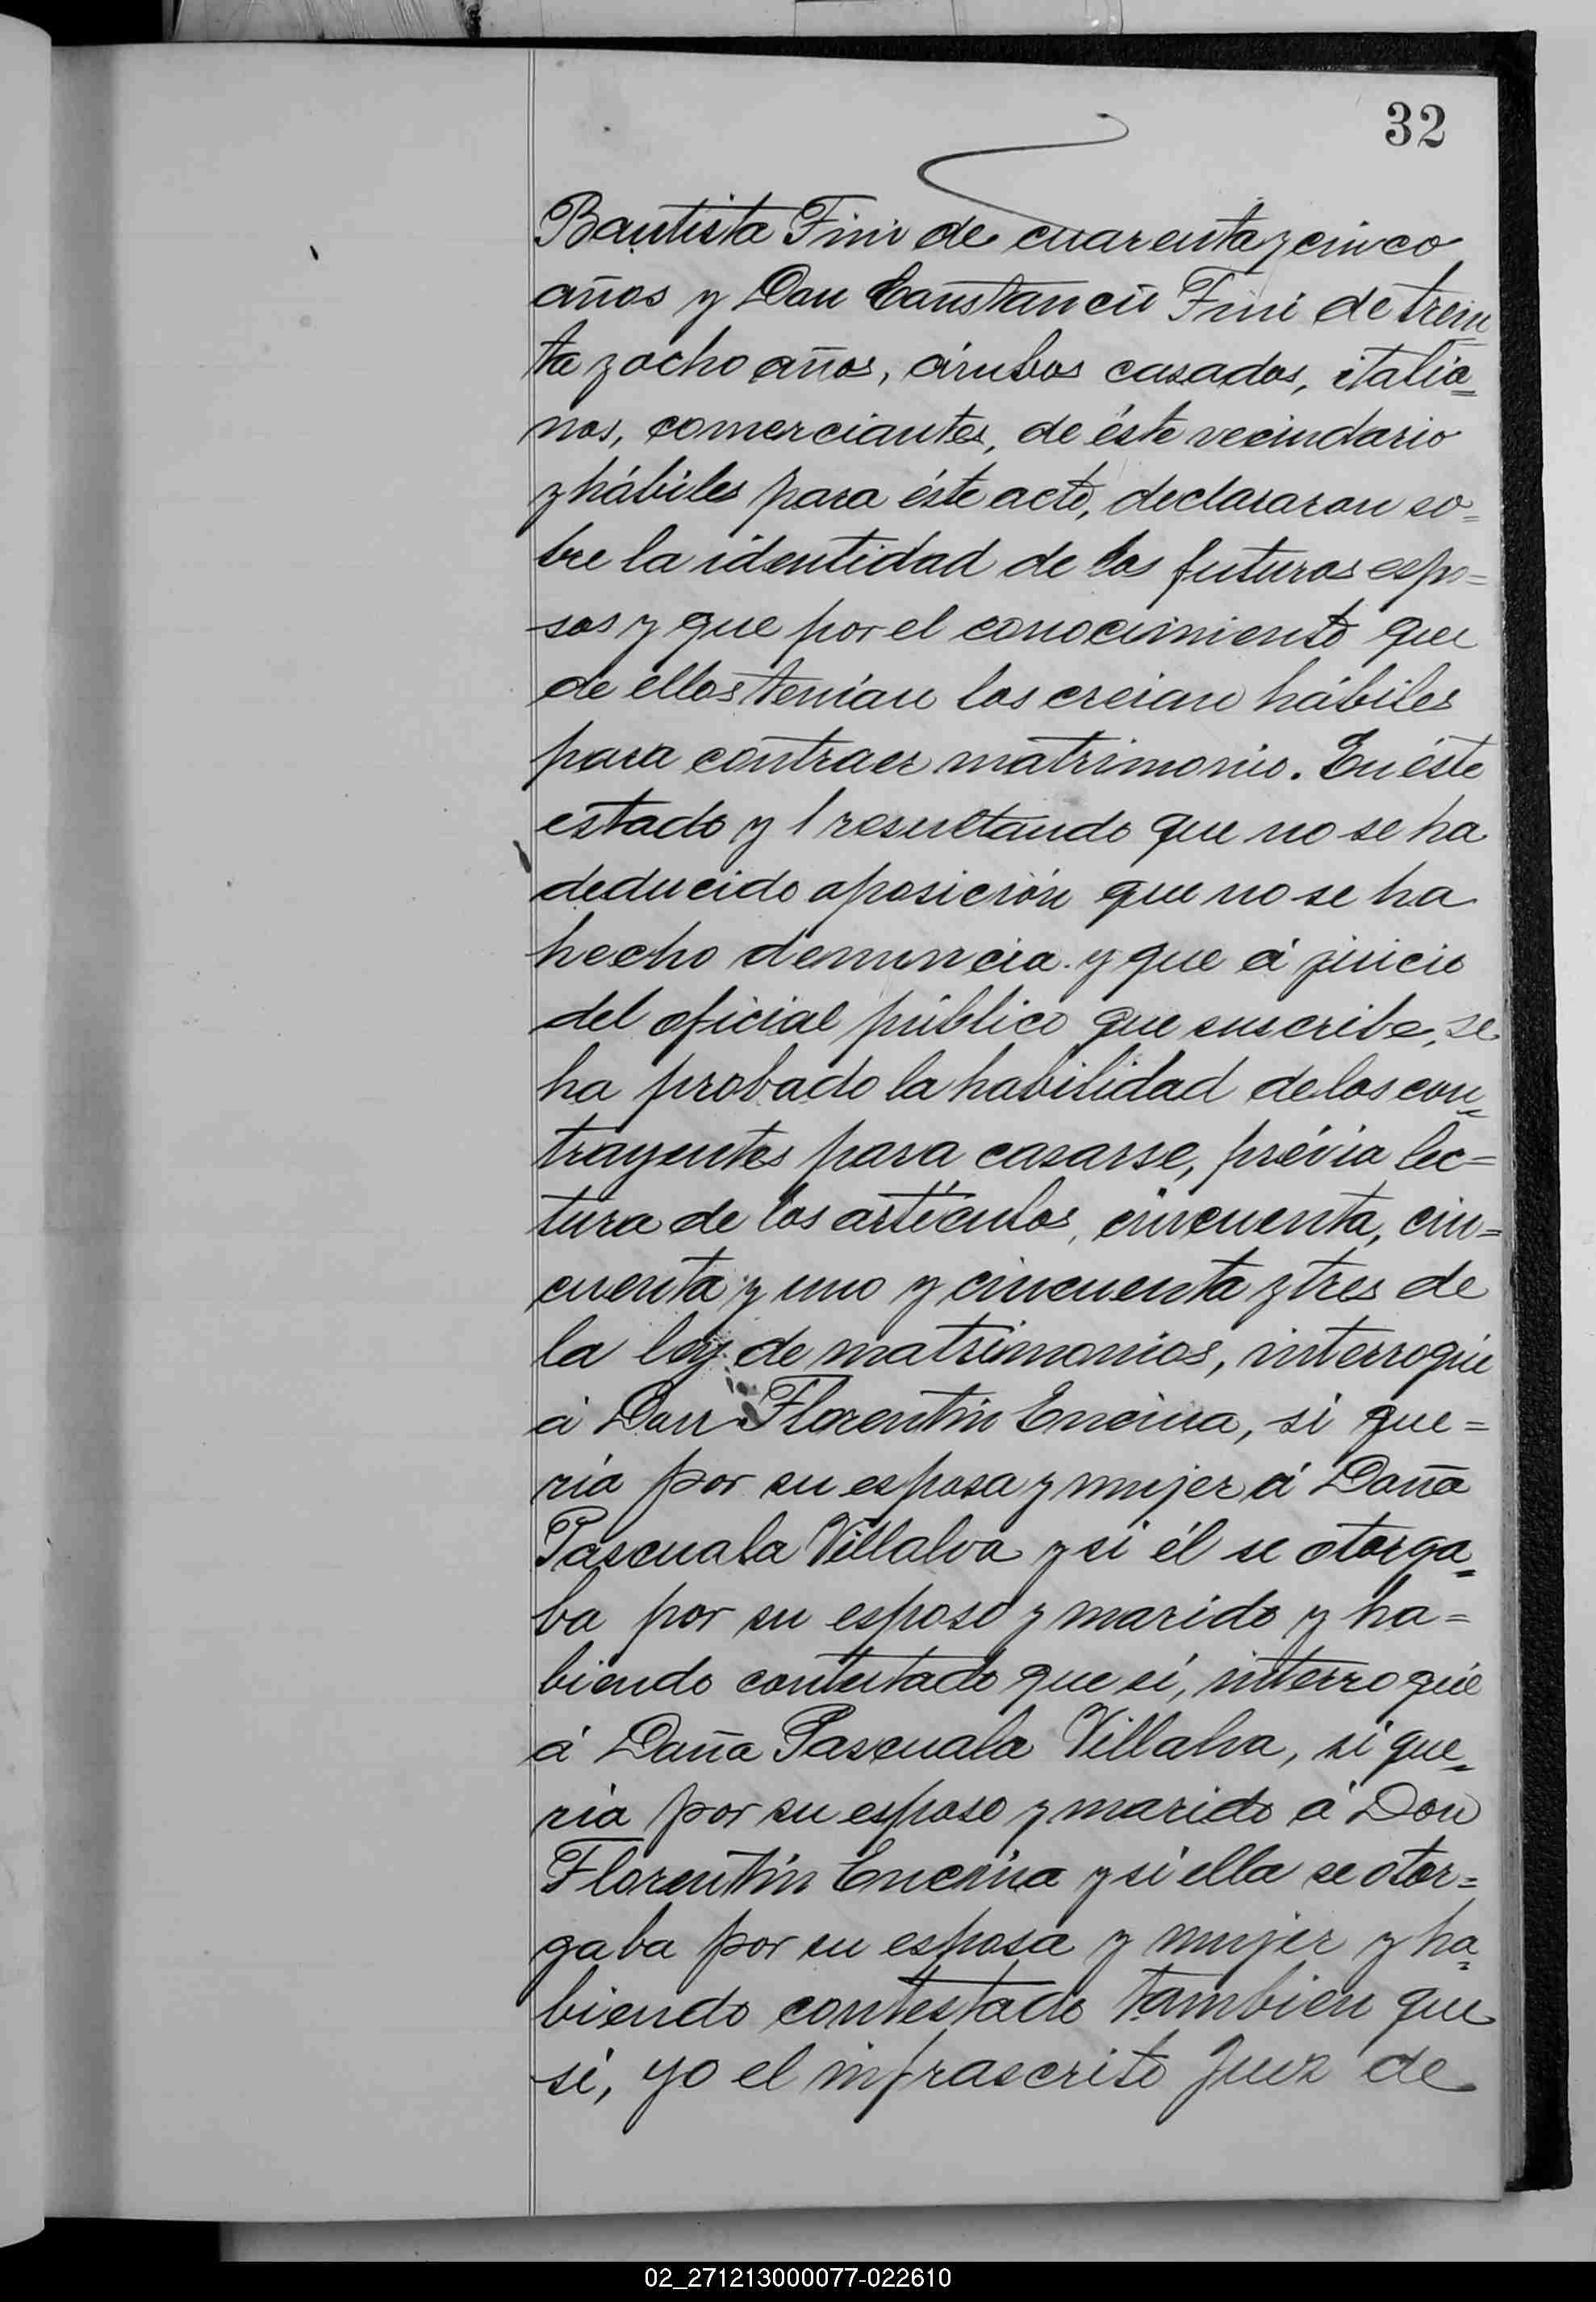 32
Bautista Fini de cuarenta y cinco
años y Don Constancio Fini de trein
ta y ocho años, ámbos casados, italia=
nos, comerciantes, de éste vecindario
y hábiles para éste acto, declararon so=
bre la identidad de los futuros espo=
sos y que por el conocimiento que
de ellos tenían los creían hábiles
para contraer matrimonio. En éste
estado y resultando que no se ha
deducido oposición que no se ha
hecho denuncia y que á juicio
del oficial público que suscribe, se
ha probado la habilidad de los con=
trayentes para casarse, prévia lec=
tura de los artículos, cincuenta, cin=
cuenta y uno y cincuenta y tres de
la ley de matrimonios, interrogué
á Don Florentin Encina, si que=
ría por su esposa y mujer á Doña
Pascuala Villalva y si él se otorga=
ba por su esposo y marido y ha=
biendo contestado que sí, interrogué
á Doña Pascuala Villalva, si que=
ría por su esposo y marido á Don
Florentin Encina y si ella se otor=
gaba por su esposa y mujer y ha=
biendo contestado tambien que
sí, yo el infrascrito Juez de
02_271213000077-022610